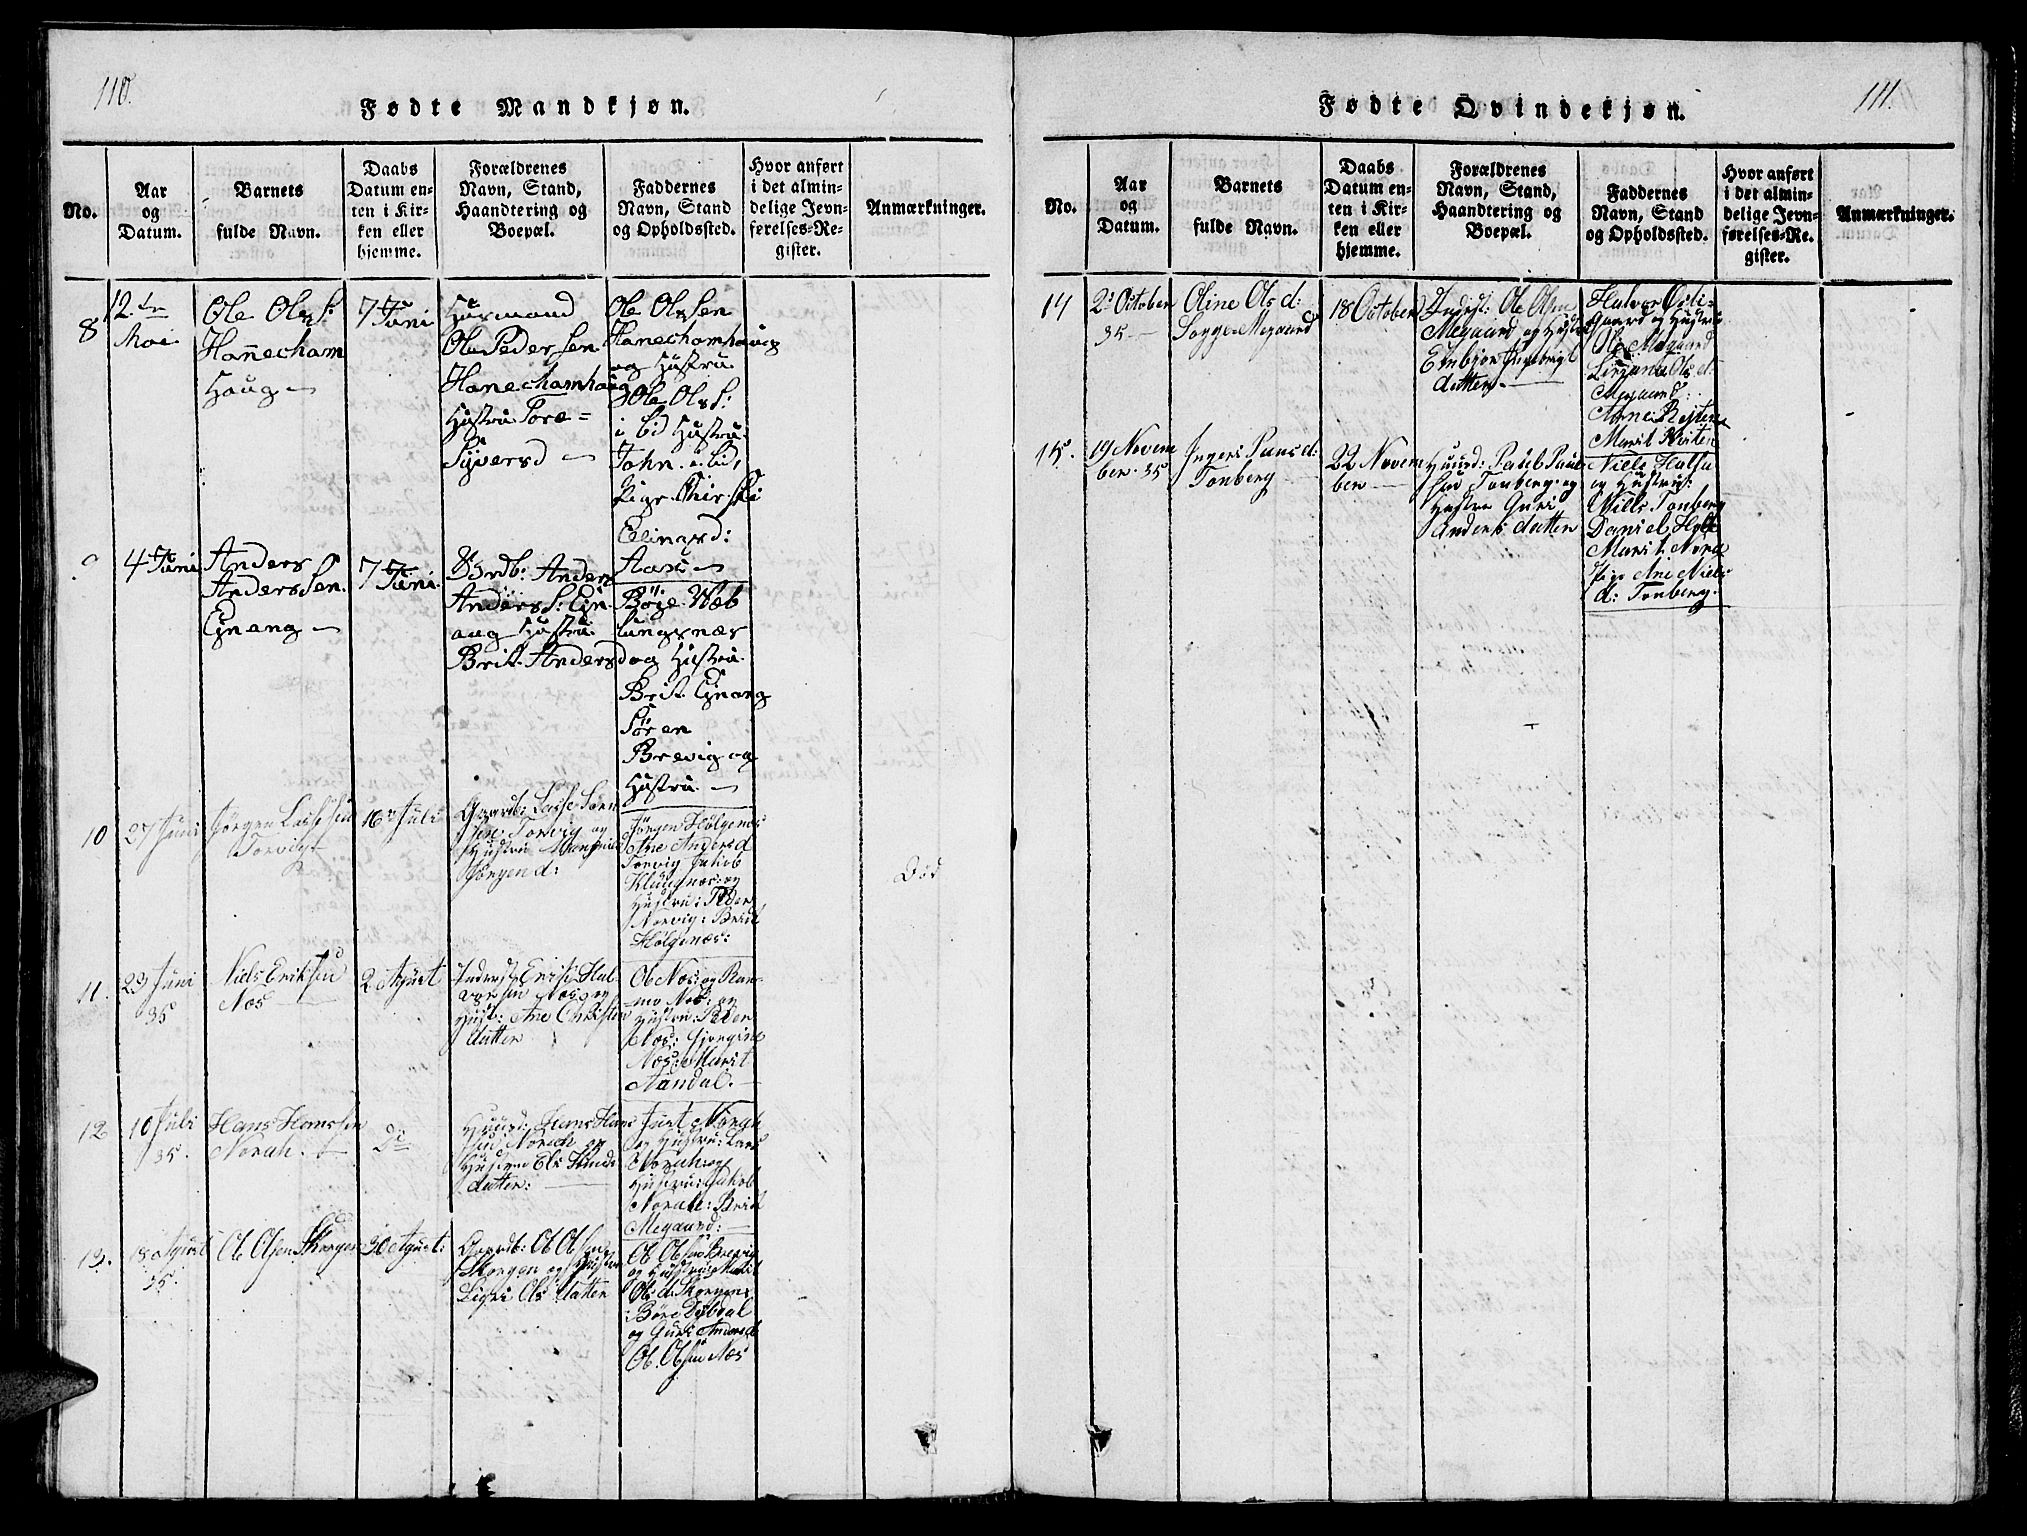 110.
Fødte Mandkjøn.
No.
Aar
og
Datum.
Barnets
fulde Navn.
Daabs
Datum en-
ten i Kir-
ken eller
hjemme.
Forældrenes
Navn, Stand,
Haandtering og
Boepæl.
Faddernes
Navn, Stand
og Opholdssted.
Hvor anført
i det almin-
delige Jevn-
førelses-Re-
gister.
Anmærkninger.
8
12.te
Mai
Ole Ols S:
Hanecham
Haug
7 Juni
Husmand
Ole Peder Sen
Hanechamhaug
Hustru Tore
Syversd
Ole Olsen
Hanechamhaug
og Hustru
Ole Ols S:
i bid Hustru
John i bid,
Pige
Elingard:
Aase
9
4 Juni
Anders
Anders Sen.
Ejnang
7 Juni
Anders
Anders S: Ejn
aug Hustru
Brit. Andersd
Böje Wæb
lungsnæs
og Hustru
Brit. Ejnang
Sören
Brevig og
Hustru
10
27 Juni
Jørgen Lasse Sen
Torvigt
16 Juli
Gaardb: Lasse
Torvig og
Hustru
Jørgen d:
Jørgen Hølgenæs
Ane Andersd
Torvig Jakob
Klungnæs og
Hustru: Peder
Norvig: Brit
Hølgenæs:
Död
11.
23 Juni
35
Niels Eriksen
Næs
2 August
Erik Hal
vorsen Næs og
Hust: Ane Christen
datter
Ole Næs: og Ran-
Næs: og
Hustru: Peder
Næs: Gjørgine
Næs: Marit
Aandal.
12
10 Juli
35.
Hans Hanssen
Norah.
Do
Huusd: Hans Hans
sen Norah og
Hustru Els
datter:
Norah
og Hustru: Lars
Norah og
Hustru: Jakob
Norah: Brit
Megaard:
13.
18 August
35.
Ole Olsen Skorgen
30 August:
Gaardb: Ole Olsen
Skorgen og Hustru
Ligri Ols datter
Ole Olsen Brevig
og Hustru
Ols d: Skorgen
Böre Dybdal
og Guri Andersd
Ole Olsen Næs
111.
Fødte Qvindekjøn.
No.
Aar
og
Datum.
Barnets
fulde Navn.
Daabs
Datum en-
ten i Kir-
ken eller
hjemme.
Forældrenes
Navn, Stand,
Haandtering og
Boepæl.
Faddernes
Navn, Stand
og Opholdssted.
Hvor anført
i det almin-
delige Jevn-
førelses-Re-
gister.
Anmærkninger.
14
2 October
35
Oline Ols d:
Sogge Megaard
18 October
Inderst: Ole Olsen
Megaard og Hustru
Embjør Ingebrigt
datter
Halvor
Gaard og Hustru
Ole Megaard
Ols d:
Megaard:
Arne
Marit
15.
19 Novem
ber. 35
Ingeri Pauls d:
Tonberg
22 Novem
ber
Huusd: Paul Paul
sen Tonberg og
Hustru Guri
Anders datter
Niels Halsa
og Hustru:
Nills Tonberg
Daniel Holte
Marit Nora
Pige Ane Niels
d: Tonberg.